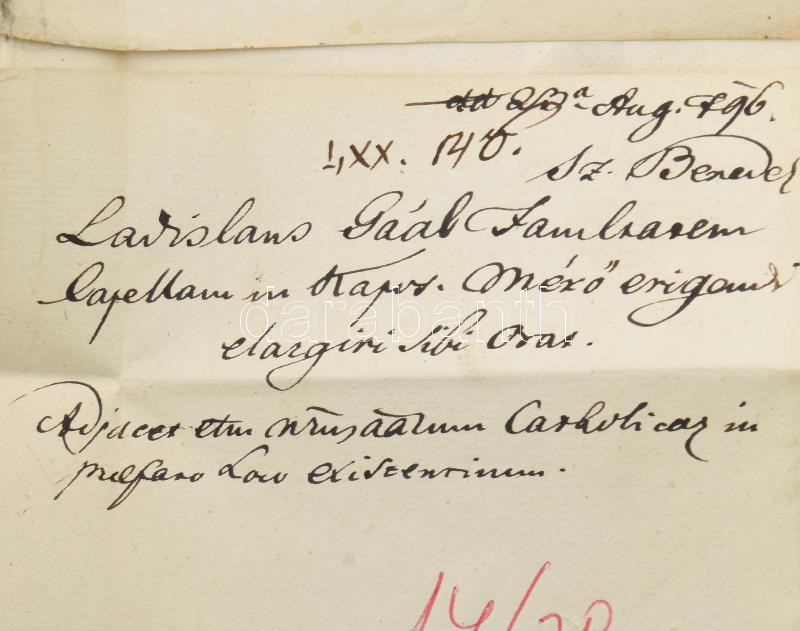 Aug. 796.
I,XX. 140.
Sz. Benedek
Ladislaus Gaál Facultatem
Capellam in Kapos. Mérő erigendi
elargiri sibi orat.
Adjacet etm numerus Catholicor in
præfato Loco existentium.
darabanth
14/20